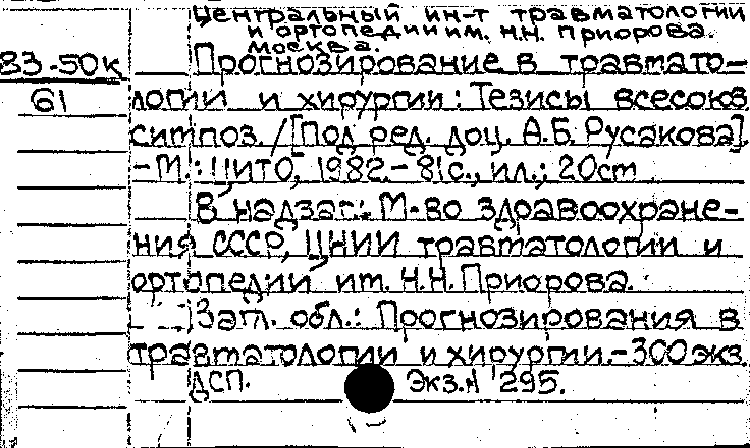 Центральный ин-т травматологии
и ортопедии им. Н.Н. Приорова.
Москва.
83-50к
61
Прогнозирование в травмато-
логии и хирургии: Тезисы всесоюз.
симпоз. /[Под ред. доц. А.Б. Русакова].
-М.: ЦИТО, 1982.- 81с., ил.; 20см
В надзаг.: М-во здравоохране-
ния СССР, ЦНИИ травматологии и
ортопедии им. Н.Н. Приорова.
Загл. обл.: Прогнозирования в
травматологии и хирургии.-300экз.
ДСП. Экз.N 295.